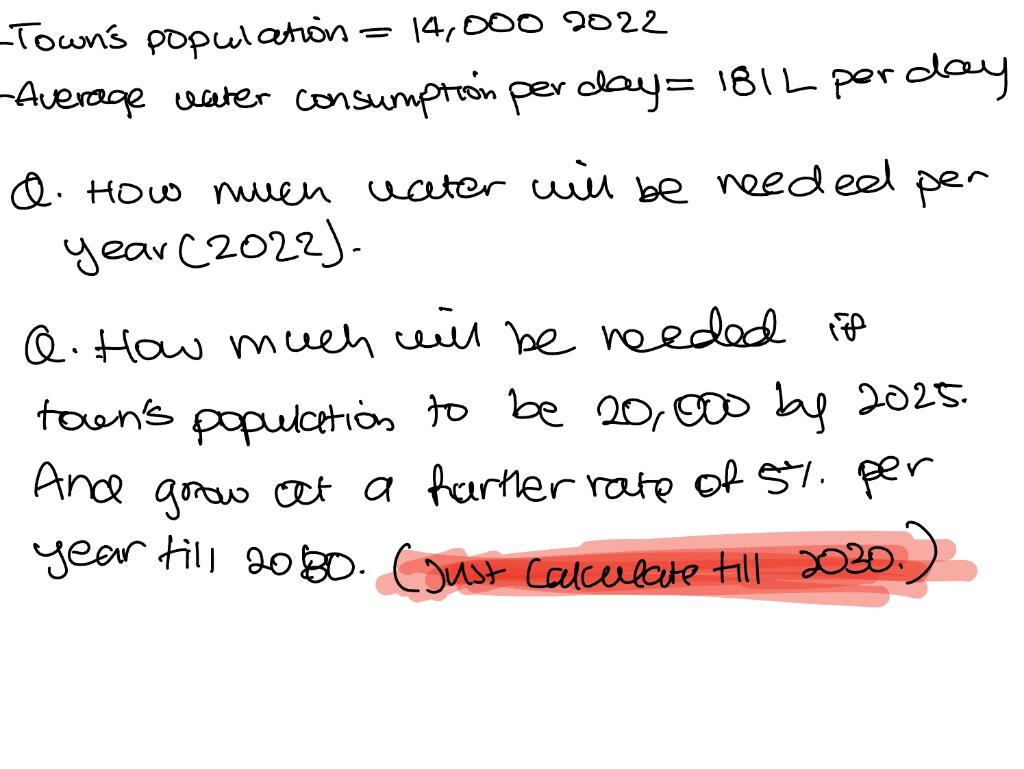 -Town's population = 14,000 2022
-Average water consumption per day= 181L per day
Q. How much water will be needed per
year (2022).
Q. How much will be needed if
town's population to be 20,000 by 2025.
And grow at a further rate of 5% per
year till 2030. (Just calculate till 2030.)